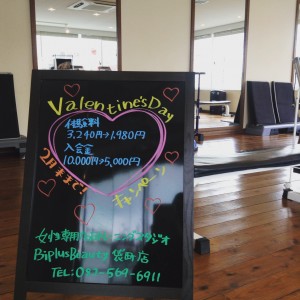 Valentine'sDay
体験料
3,240円→1,980円
入会金
10,000円→5,000円
2月末まで!
キャンペーン
女性専用
スタジオ
BiplusBeauty 袋町店
TEL:082-569-6911